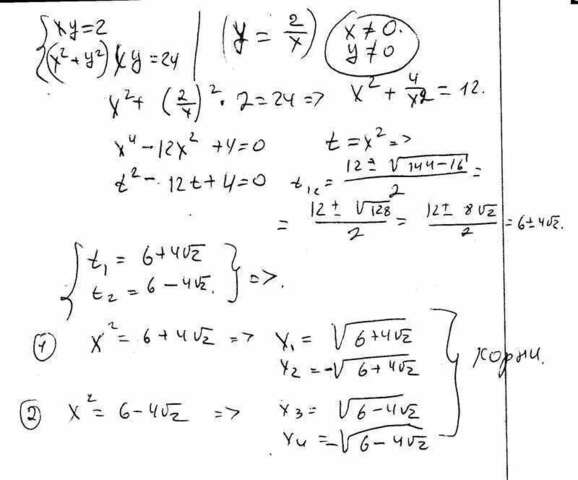 { xy = 2
{ (x² + y²) xy = 24 | (y = 2/x) x ≠ 0. y ≠ 0
x² + (2/x)² · 2 = 24 => x² + 4/x² = 12.
x⁴ - 12x² + 4 = 0 t = x² =>
t² - 12t + 4 = 0 t₁,₂ = (12 ± √(144 - 16))/2 =
= (12 ± √128)/2 = (12 ± 8√2)/2 = 6 ± 4√2.
{ t₁ = 6 + 4√2
{ t₂ = 6 - 4√2. } =>.
① x² = 6 + 4√2 => x₁ = √(6 + 4√2)
x₂ = -√(6 + 4√2)
} корни.
② x² = 6 - 4√2 => x₃ = √(6 - 4√2)
x₄ = -√(6 - 4√2)